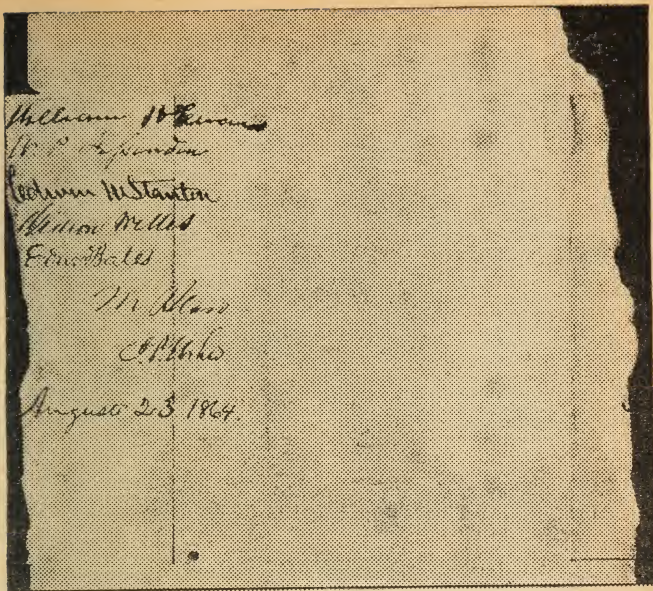 William H Seward
W. P. Fessenden
Edwin M Stanton
Gideon Welles
Edwd Bates
M Blair
J. P. Usher
August 23 1864.